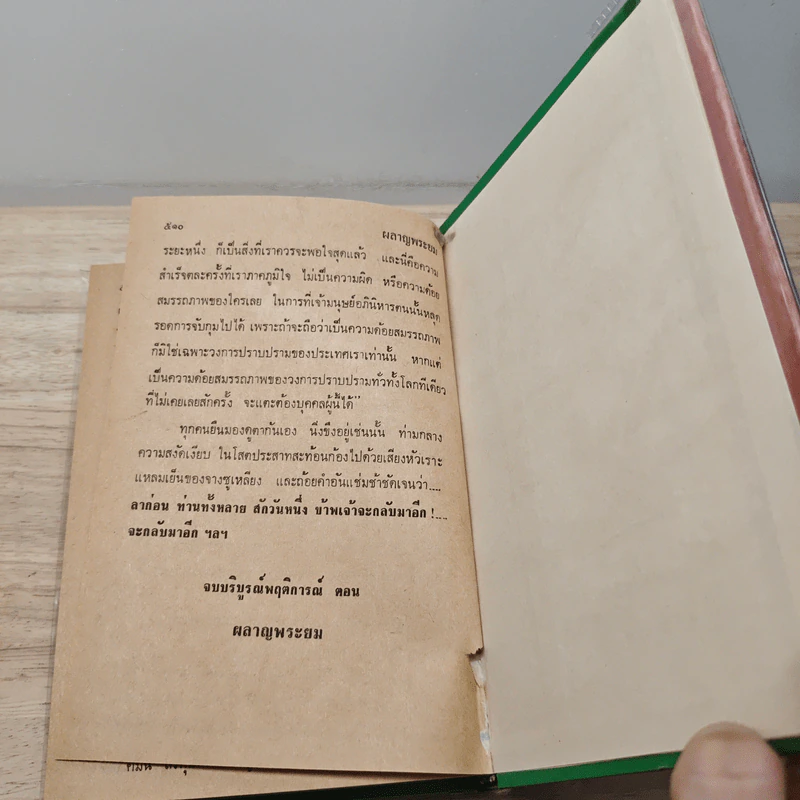 ๕๑๐
ผลาญพระยม
ระยะหนึ่ง ก็เป็นสิ่งที่เราควรจะพอใจสุดแล้ว และนี่คือความ
สำเร็จตละครั้งที่เราภาคภูมิใจ ไม่เป็นความผิด หรือความด้อย
สมรรถภาพของใครเลย ในการที่เจ้ามนุษย์อภินิหารคนนั้นหลุด
รอดการจับกุมไปได้ เพราะถ้าจะถือว่าเป็นความด้อยสมรรถภาพ
ก็มิใช่เฉพาะวงการปราบปรามของประเทศเราเท่านั้น หากแต่
เป็นความด้อยสมรรถภาพของวงการปราบปรามทั่วทั้งโลกทีเดียว
ที่ไม่เคยเลยสักครั้ง จะแตะต้องบุคคลผู้นี้ได้"
ทุกคนยืนมองดูตากันเอง นิ่งขึงอยู่เช่นนั้น ท่ามกลาง
ความสงัดเงียบ ในโสตประสาทสะท้อนก้องไปด้วยเสียงหัวเราะ
แหลมเย็นของจางซูเหลียง และถ้อยคำอันแช่มช้าชัดเจนว่า....
ลาก่อน ท่านทั้งหลาย สักวันหนึ่ง ข้าพเจ้าจะกลับมาอีก !....
จะกลับมาอีก ฯลฯ
จบบริบูรณ์พฤติการณ์ ตอน
ผลาญพระยม